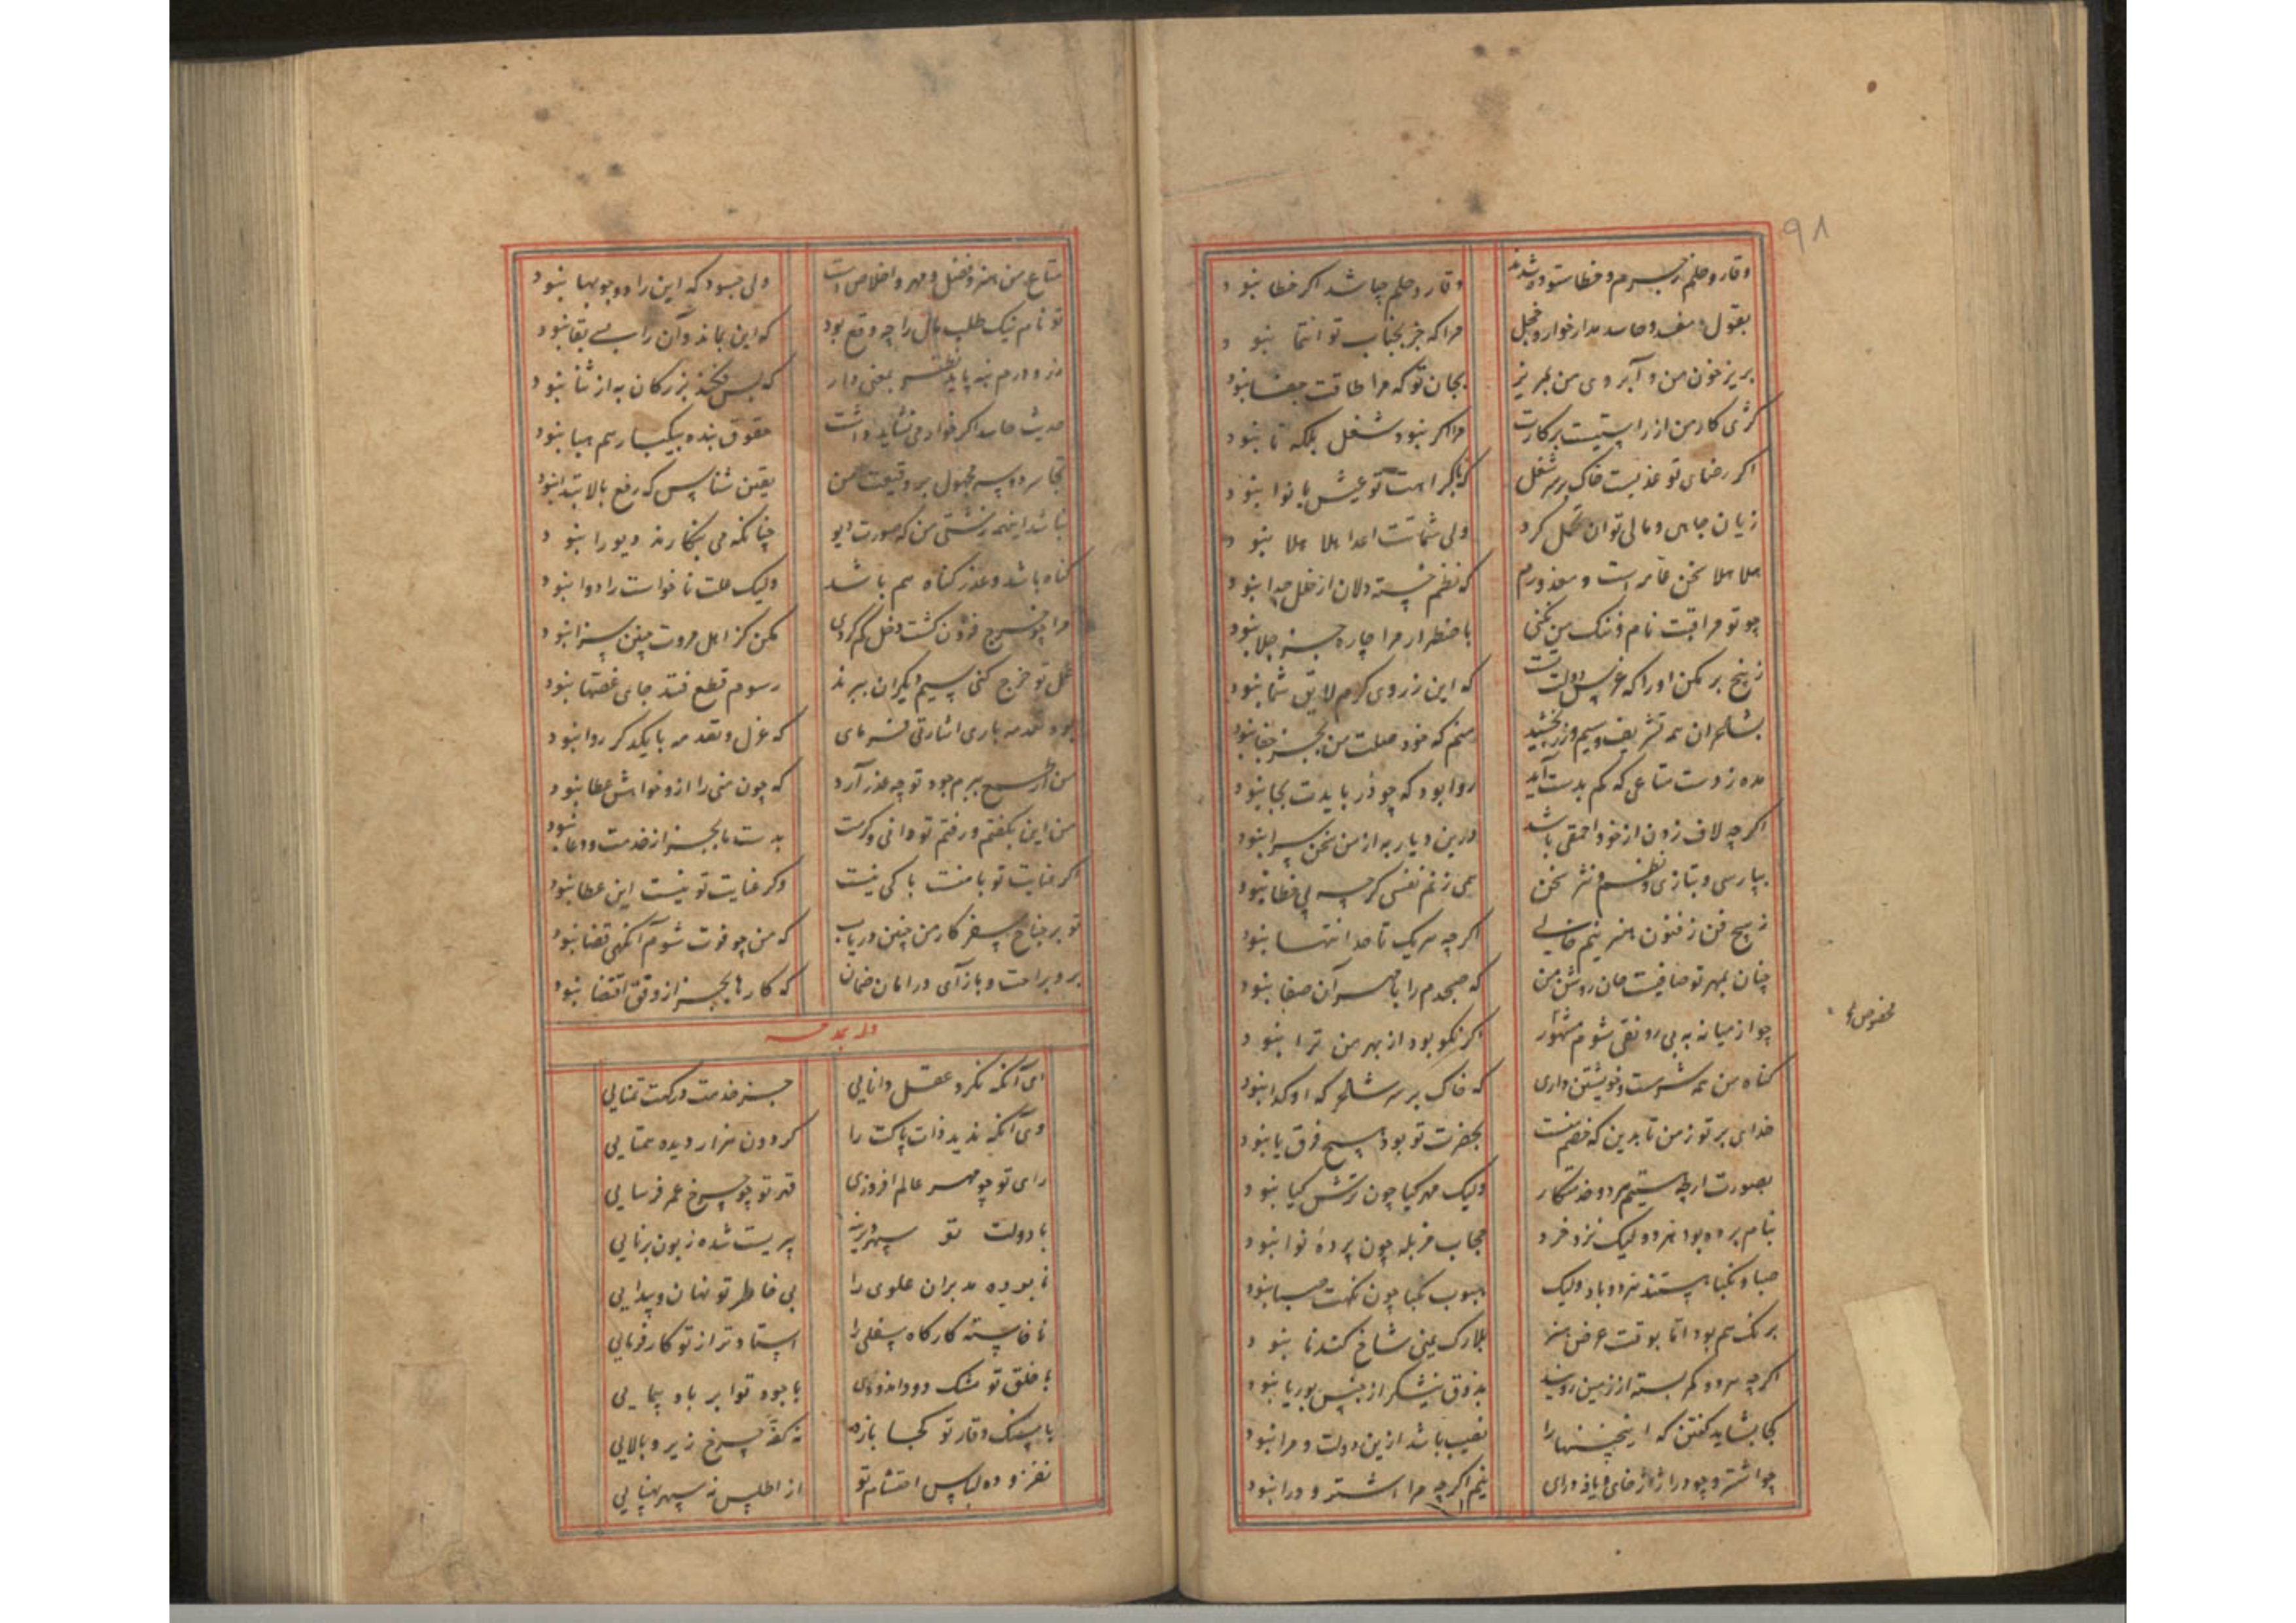 ۹۸
وقار و حلم ز جرم و خطا ستوده شدند وقار و حلم چه باشد اگر خطا نبود
بقول مفسد و حاسد مدار خوار و خجل مرا که جز بجناب تو انتما نبود
بریز خون من و آبروی من بمریز بجان تو که مرا طاقت جفا نبود
کژی کار من از راستیست برکارت مرا اگر نبود شغل بلکه تا نبود
اگر رضای تو عذبست خاک بر سر شغل که با کراهت تو عیش با نوا نبود
زیان جاهی و مالی توان تحمل کرد ولی شماتت اعدا هلا هلا نبود
هلا هلا سخن خامر است و معذورم که نظم خسته دلان از خلل جدا نبود
چو تو مراقبت نام و ننگ من نکنی باضطرار مرا چاره جز جلا نبود
ز بیخ بر مکن اورا که غرس دولت تست که این ز روی کرم لایق شما نبود
بشاعران همه تشریف و سیم و زر بخشید منم که خود صلت من بجز جفا نبود
مده ز دست متاعی که کم بدست آید روا بود که چو در بایدت بجا نبود
اگر چه لاف زدن از خود احمقی باشد درین دیار به از من سخن سرا نبود
بپارسی و بتازی و نظم و نثر سخن همی زنم نفسی گر چه بی خطا نبود
ز هیچ فن ز فنون هنر نیم خالی اگر چه هر یک تا حد انتها نبود
چنان بمهر تو صافیست جان روشن من که صبحدم را با مهر آن صفا نبود
چو از میانه به بی رونقی شوم مشهور اگر نکو بود از بهر من ترا نبود
گناه من همه شعرست و خویشتن داری که خاک بر سر شاعر که او گدا نبود
خدای بر تو ز من تا بدین که خصم منست بحضرت تو بود هیچ فرق یا نبود
بصورت ار چه ستیم هر دو خدمتکار ولیک مهر گیا چون ترش گیا نبود
بنام پرده بود هر دو لیک نزد خرد حجاب مزبله چون پرده نوا نبود
صبا و نکبا هستند هر دو باد ولیک هبوب نکبا چون نکهت صبا نبود
برنگ هم بود اما بوقت عرض هنر بلارک یمنی شاخ گندنا نبود
اگر چه هر دو کمر بسته از زمین رویند بذوق نیشکر از جنس بوریا نبود
کجا بشاید گفتن که اینچنینها را نصیب باشد ازین دولت و مرا نبود
چو اشتر و چو درا ژاژخای و یافه درای نیم اگر چه مرا اشتر و درا نبود
مخصوص
متاع من هنر و فضل و مهر و اخلاص است ولی چه سود که این را دو جو بها نبود
تو نام نیک طلب مال را چه وقع بود که این بماند و آن را بسی بقا نبود
حدیث حاسد اگر خوار می نشاید داشت حقوق بنده بیکبار هم هبا نبود
نباشد اینهمه زشتی من که صورت دیو چنانکه می بنگارند دیو را نبود
گناه باشد و عذر گناه هم باشد ولیک علت ناخواست را دوا نبود
مرا چو خرج فزون گشت دخل کم کردی مکن کز اهل مروت چنین سزا نبود
عمل تو خرج کنی سیم دیگران ببرند رسوم قطع فتد جای غصها نبود
بود تقدمه باری اشارتی فرمای که عزل و تقدمه با یکدگر روا نبود
من ار طمع ببرم جود تو چه عذر آرد که چون منی را ازو خواهش عطا نبود
من این بگفتم و رفتم تو دانی و کرمت بدست ما بجز از خدمت و دعا نبود
اگر عنایت تو با منست باکی نیست وگر عنایت تو نیست این عطا نبود
تو بر جناح سفر کار من چنین دریاب که من چو فوت شوم آنگهی قضا نبود
برو براحت و بازآی در امان ضمان که کارها بجز از وفق اقتضا نبود
وله یمدحه
ای آنکه نکرد عقل دانایی جز خدمت درگهت تمنایی
وی آنکه ندید ذات پاکت را گردون هزار دیده همتایی
رای تو چو مهر عالم افروزی قهر تو چو چرخ عمر فرسایی
با دولت تو سپهر دیرینه پیریست شده زبون برنایی
نابوده مدبران علوی را بی خاطر تو نهان و پیدایی
ناخاسته کارگاه سفلی را استادتر از تو کارفرمایی
با خلق تو مشک دود اندودی با جود تو ابر باد پیمایی
با سنگ وقار تو کجا یازد نه کفه چرخ زیر و بالایی
نفزوده لباس احتشام تو از اطلس نه سپهر پهنایی